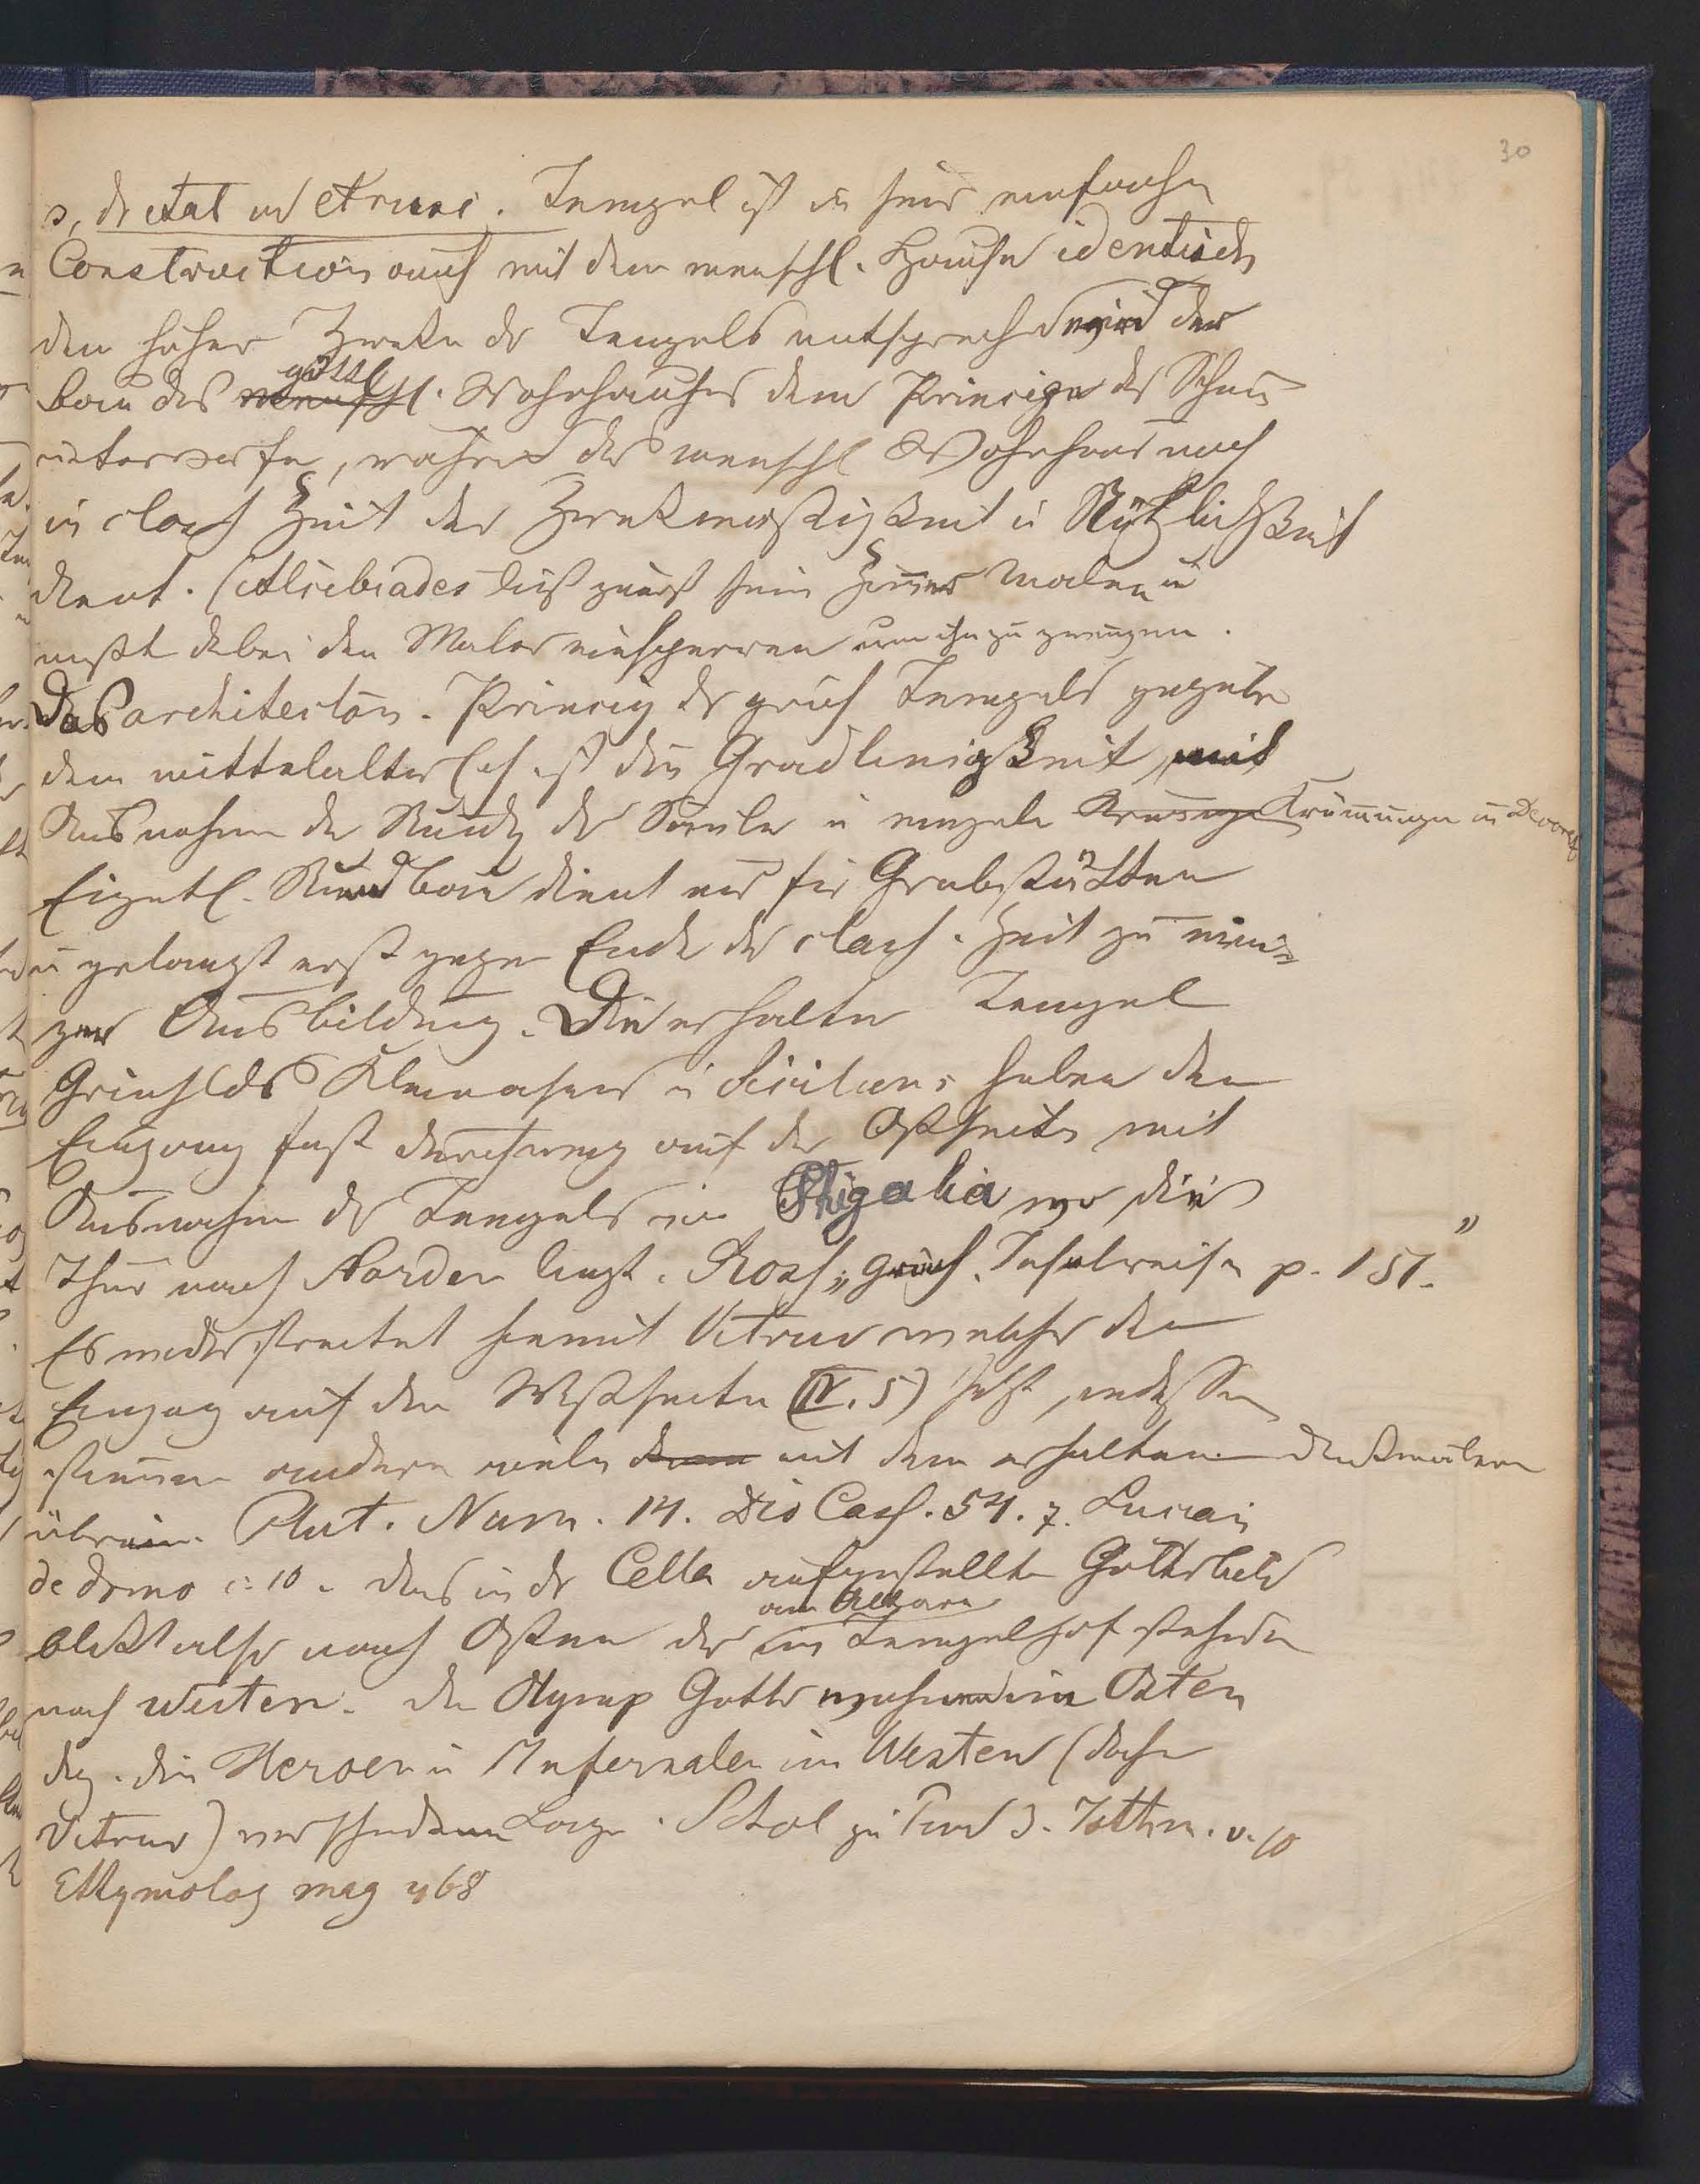 30
s, dr ital u etrusc. Tempel ist in seiner einfachen
Construction auch mit dem menschl. Hause identisch
den höhern Zweken ds Tempels entsprechend wird der
göttl
bau des menschl. Wohnhauses dem Principe des Schön
unterworfen, während das menschl Wohnhaus noch
in class Zeit der Zwekmässigkeit u Nützlichkeit
dient. (Alcibiades ließ zuerst sein Zimmer malen u
mußte dabei den Maler einsperren um ihn zu zwingen.
Das architecton. Princip ds griech Tempels gegenüber
dem mittelalterlich ist die Gradlinigkeit, mit
Ausnahme der Rundg der Säule u einzele Krümungen im Decorat
Eigentl. Rundbau dient nur für Grabstätten
u gelangt erst gegen Ende der class. Zeit zu eini-
ger Ausbildung. Die erhalten Tempel
Griechlds Kleinasiens u Siciliens haben den
Eingang fast durchweg auf der Ostseite mit
Ausnahme ds Tempels in Phigalia wo die
Thür nach Norden liegt. Ross „griech. Inselreisen p. 151."
Es widerstreitet hiemit Vitruv welcher den
Eingang auf den Westseite (IV. 5) setzt, indessen
stimmen andere viele mit den erhaltenen Denkmälern
überein. Plut. Num. 14. Dio Cass. 54. 7. Lucian
de domo c. 10. das in dr Cella aufgestellte Götterbild
am Altare
blikt also nach Osten der im Tempelhof stehende
nach Westen. die Olymp Götter wohnend im Osten
dg. die Heroen u Infernalen im Westen (daher
Vitruv) verschiedene Lage. Schol zu Pind 3. Isthm. v. 10
Ethymolog mag 468